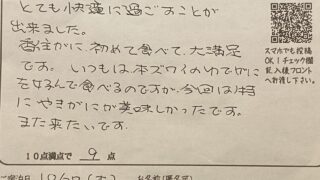 とても快適に過ごすことが
出来ました。
香住がに、初めて食べて、大満足
です。いつもは、本ズワイのゆでガニ
を好んで食べるのですが、今回は特
にやきがにが美味しかったです。
また来たいです。
スマホでも投稿
OK！チェック欄
記入後フロント
へお渡し下さい。
10点満点で 9 点